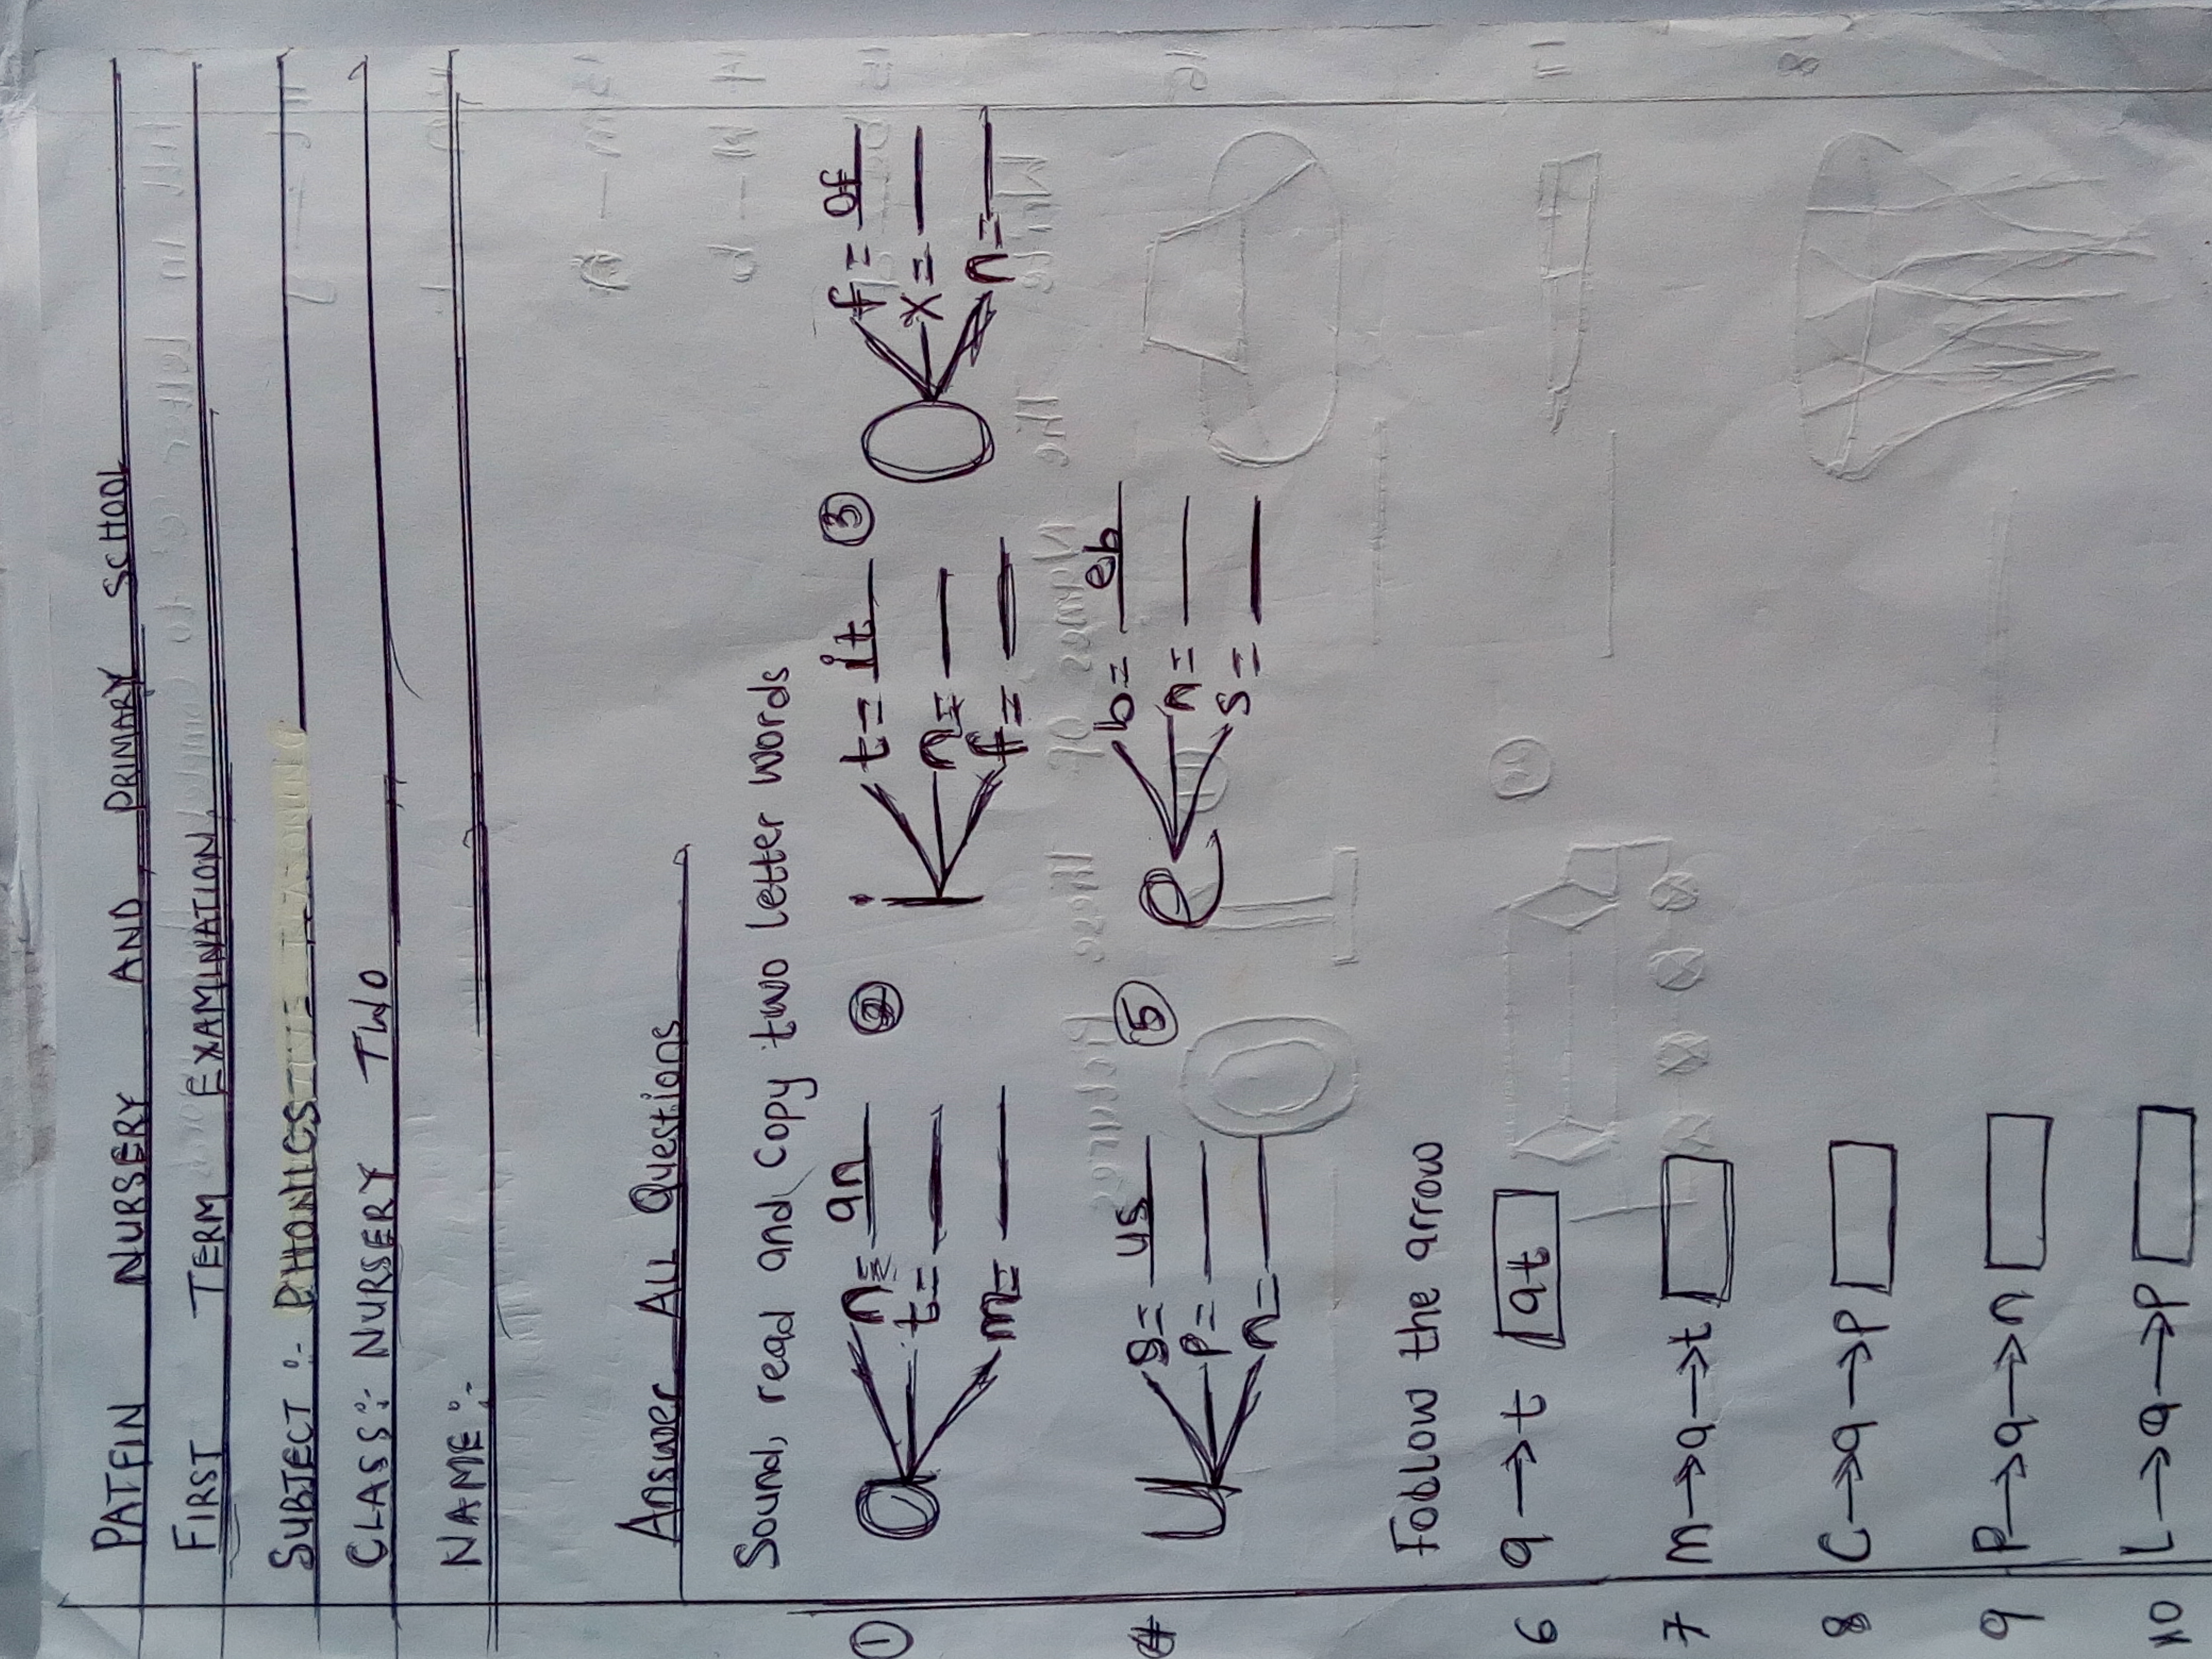 PATFIN NURSERY AND PRIMARY SCHOOL
FIRST TERM EXAMINATION
SUBJECT :- PHONICS
CLASS :- NURSERY TWO
NAME :-
Answer All Questions
Sound, read and copy two letter words
① a n = an
t =
m =
② i t = it
n =
f =
③ o f = of
x =
n =
4 u s = us
p =
n =
⑤ e b = eb
n =
s =
Follow the arrow
6 a → t at
7 m → a → t
8 C → a → p
9 P → a → n
10 L → a → p